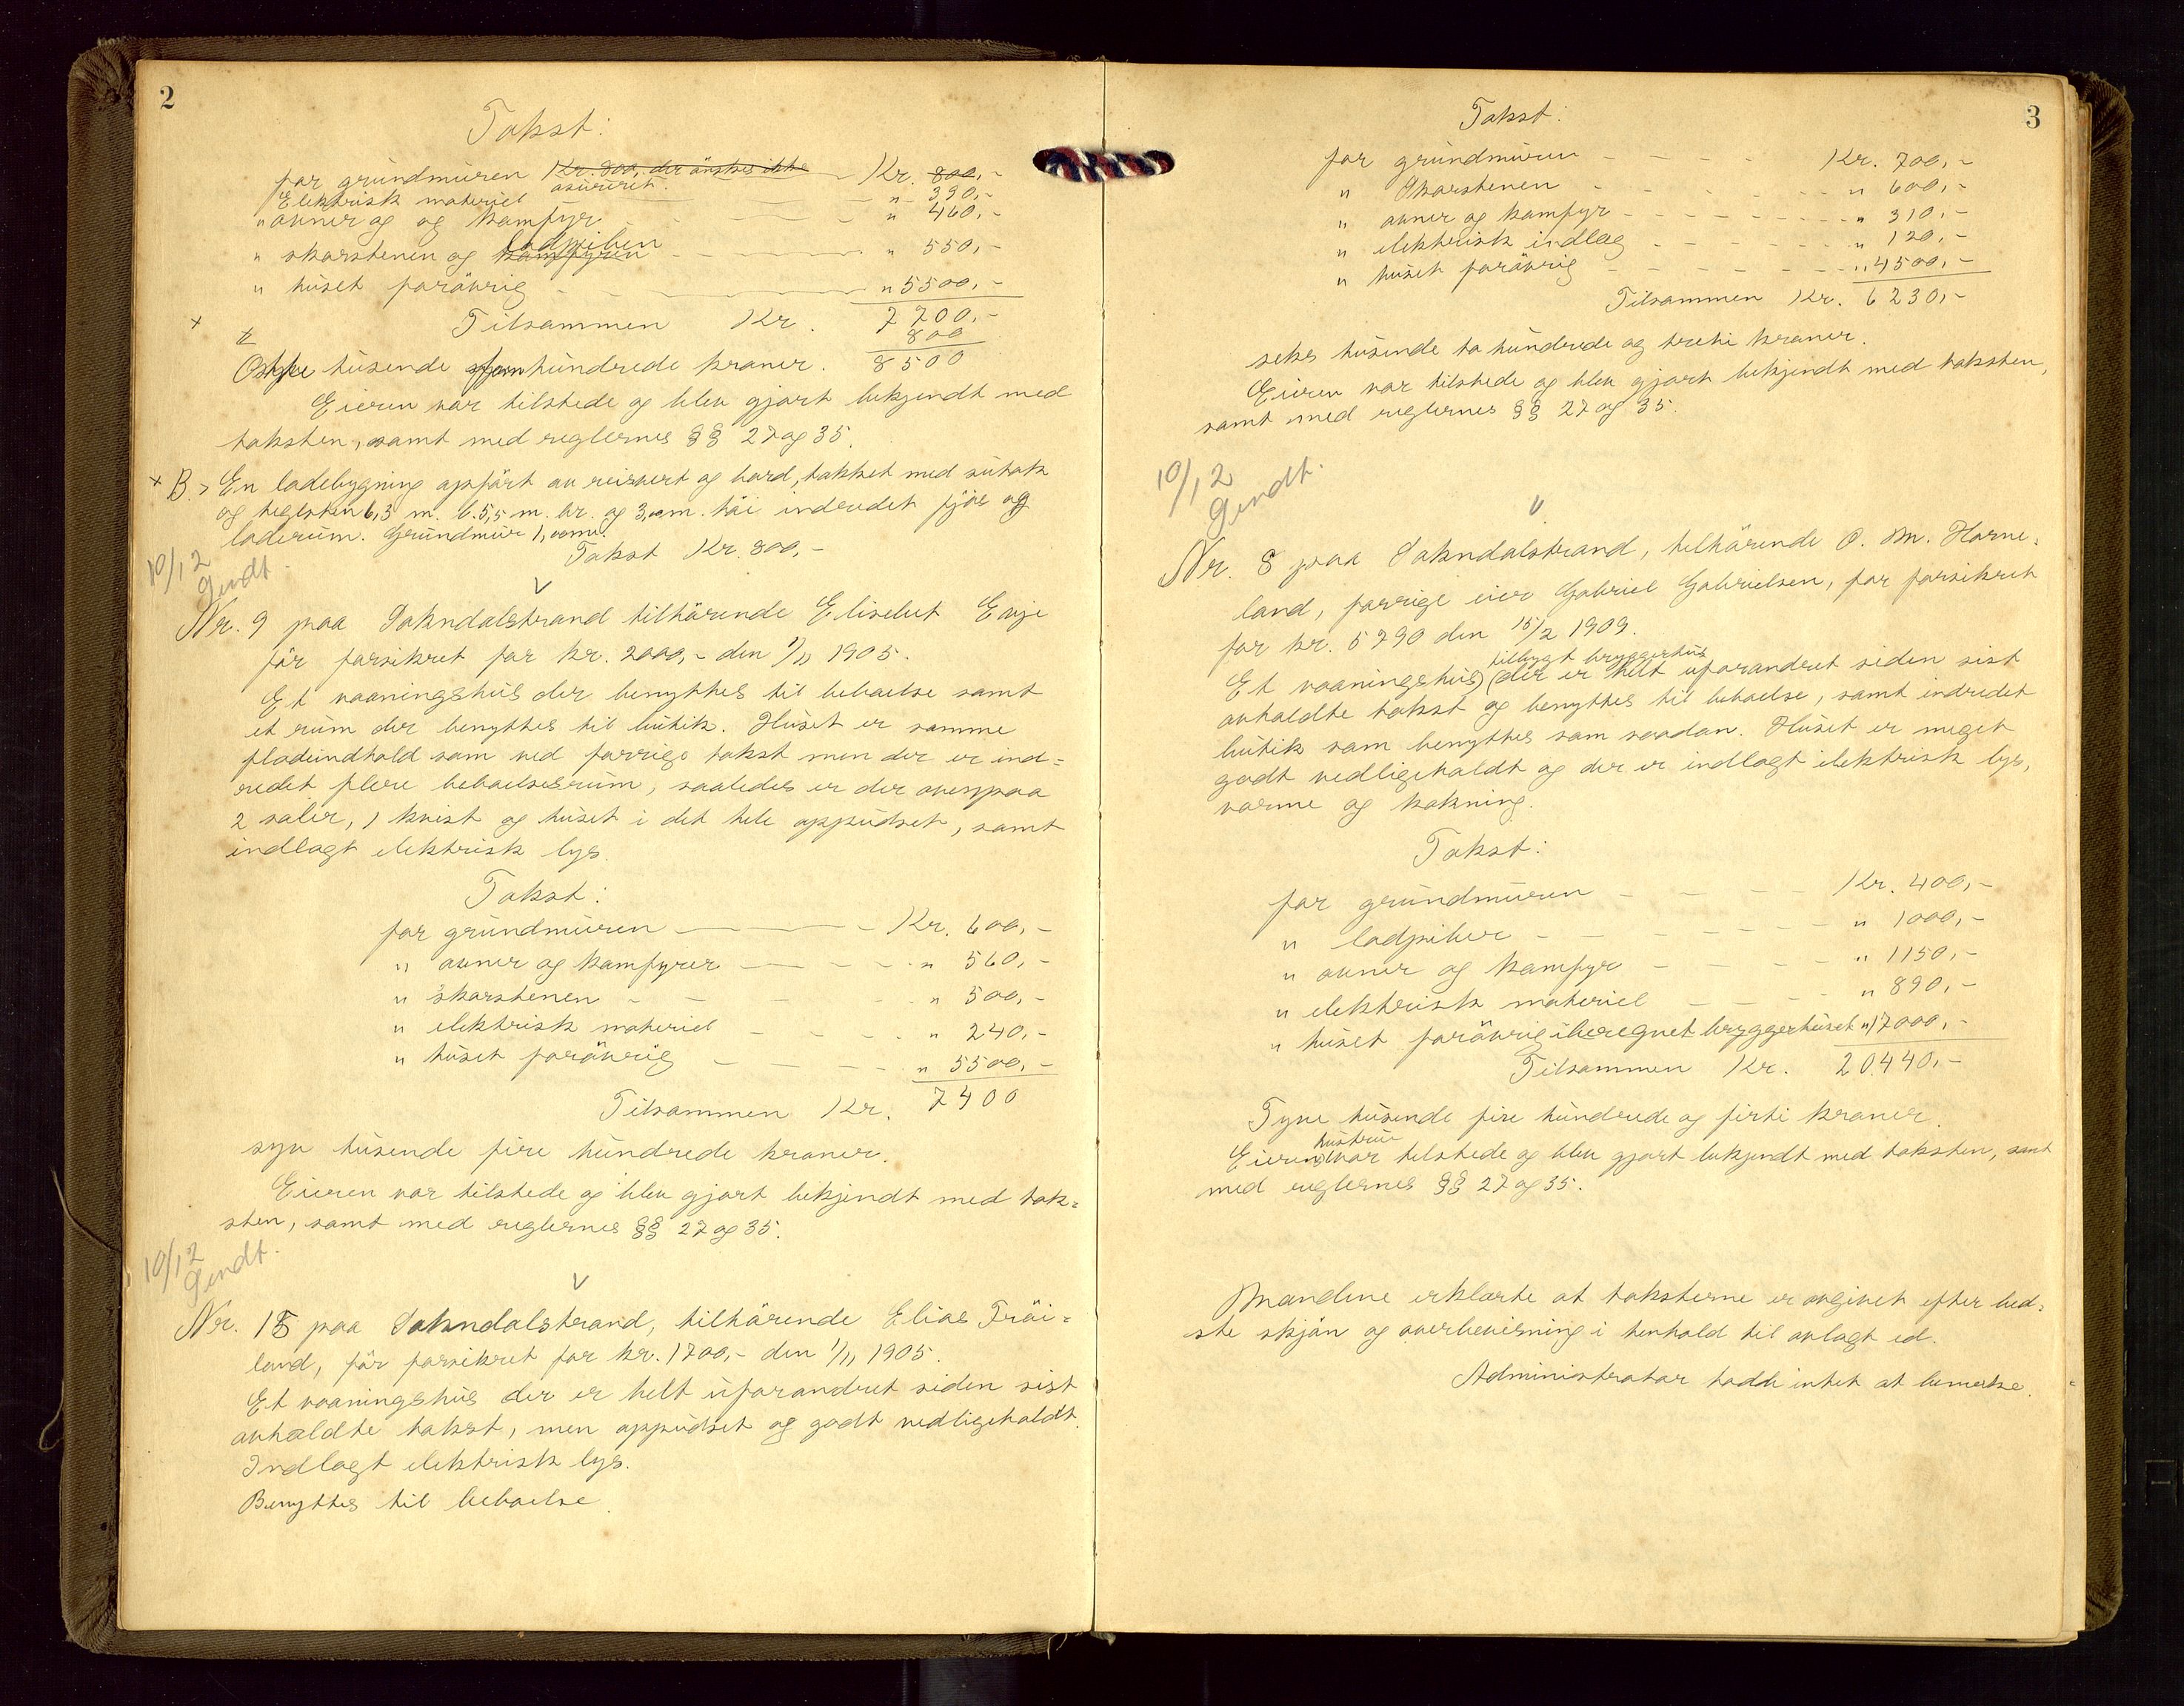 2
Takst:
for grundmuren Kr. 800, der önskes ikke Kr. 800,-
asureret.
Elektrisk materiel " 390,-
" ovner og og kamfyr " 460,-
" skorstenen og kamfyren lodpiben " 550,-
" huset forövrig " 5500,-
Tilsammen Kr. 7700,-
800
8500
Otte tusende fem hundrede kroner.
Eieren var tilstede og blev gjort bekjendt med
taksten, samt med reglernes §§ 27 og 35.
+ B. En ladebygning opfört av reisvert og bord, takket med sutak
og teglsten 6,3 m. l. 5,5 m. br. og 3,0 m. höi indredet fjös og
laderum. Grundmur 1,00 m.
Takst Kr. 800,-
10/12
Gjendt.
Nr. 9 paa Sokndalstrand tilhörende Elisebet Evje
för forsikret for kr. 2000,- den 1/11 1905.
Et vaaningshus der benyttes til beboelse samt
et rum der benyttes til butik. Huset er samme
fladeindhold som ved forrige takst men der er ind=
redet flere beboelsesrum, saaledes er der ovenpaa
2 saler, 1 kvist og huset i det hele oppudset, samt
indlagt elektrisk lys.
Takst:
for grundmuren Kr. 600,-
" ovner og kamfyrer " 560,-
" skorstenen " 500,-
" elektrisk materiel " 240,-
" huset forövrig " 5500,-
Tilsammen Kr. 7400
syv tusende fire hundrede kroner.
Eieren var tilstede og blev gjort bekjendt med tak=
sten, samt med reglernes §§ 27 og 35.
10/12
Gjendt.
Nr. 18 paa Sokndalstrand, tilhörende Elias Fröi=
land, för forsikret for kr. 1700,- den 1/11 1905.
Et vaaningshus der er helt uforandret siden sist
avholdte takst, men oppudset og godt vedligeholdt.
Indlagt elektrisk lys.
Benyttes til beboelse.
3
Takst:
for grundmuren Kr. 700,-
" Skorstenen " 600,-
" ovner og kamfyr " 310,-
" elektrisk indlæg " 120,-
" huset forövrig " 4500,-
Tilsammen Kr. 6230,-
seks tusende to hundrede og treti kroner.
Eieren var tilstede og blev gjort bekjendt med taksten,
samt med reglernes §§ 27 og 35.
10/12
Gjendt.
Nr. 8 paa Sokndalstrand, tilhörende O. M. Horne=
land, forrige eier Gabriel Gabrielsen, for forsikret
for kr. 5790 den 15/2 1909.
tilbygt bryggerhus
Et vaaningshus) (der er helt uforandret siden sist
avholdte takst og benyttes til beboelse, samt indredet
butik som benyttes som saadan. Huset er meget
godt vedligeholdt og der er indlagt elektrisk lys,
varme og kokning.
Takst:
for grundmuren Kr. 400,-
" lodpiber " 1000,-
" ovner og kamfyr " 1150,-
" elektrisk materiel " 890,-
" huset forövrig iberegnet bryggerhuset " 17000,-
Tilsammen Kr. 20440,-
Tyve tusende fire hundrede og firti kroner.
hustru
Eierens var tilstede og blev gjort bekjendt med taksten, samt
med reglernes §§ 27 og 35.
Mændene erklærte at taksterne er avgivet efter bed=
ste skjön og overbevisning i henhold til avlagt ed.
Administrator hadde intet at bemerke.